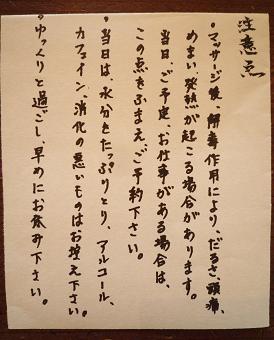 注意点
・マッサージ後、解毒作用により、だるさ、頭痛、
めまい、発熱が起こる場合があります。
当日、ご予定、お仕事がある場合は、
この点をふまえ、ご予約下さい。
・当日は、水分をたっぷりとり、アルコール、
カフェイン、消化の悪いものはお控え下さい。
・ゆっくりと過ごし、早めにお休み下さい。